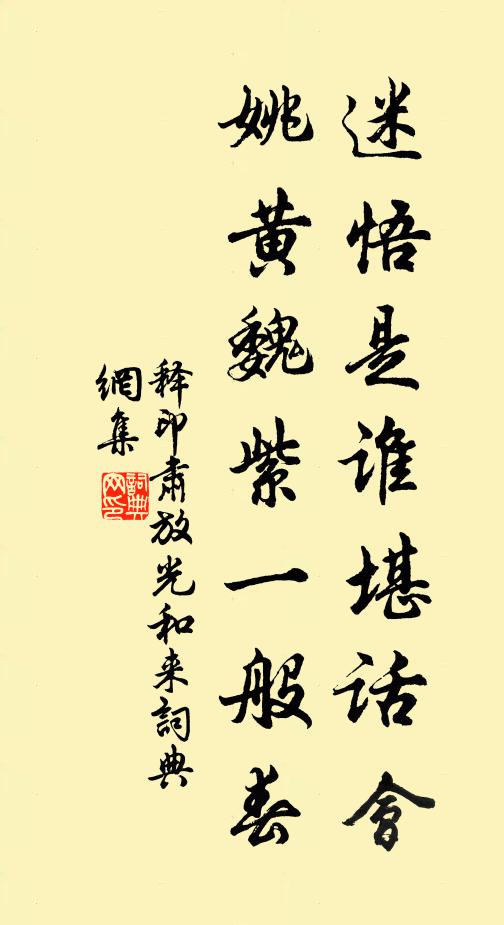 迷悟是谁堪话會
姚黄魏紫一般春
释印肃放光和来詞典
網集
詞典网印